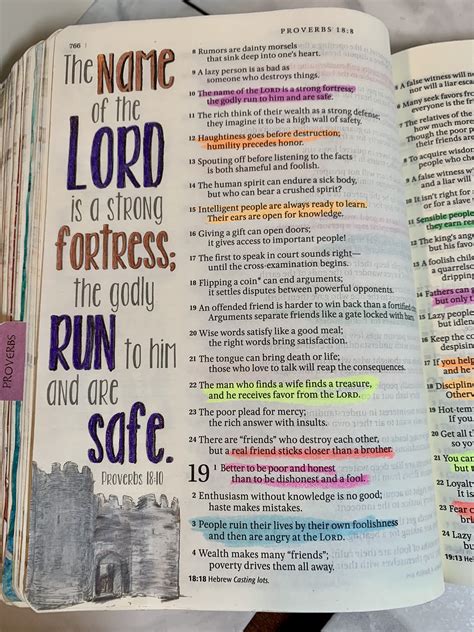 766
PROVERBS 18:8
The NAME
of the
LORD
is a strong
FORTRESS;
the godly
RUN to him
and are
safe.
Proverbs 18:10
PROVERBS
8 Rumors are dainty morsels
that sink deep into one's heart.
9 A lazy person is as bad as
someone who destroys things.
10 The name of the LORD is a strong fortress;
the godly run to him and are safe.
11 The rich think of their wealth as a strong defense;
they imagine it to be a high wall of safety.
12 Haughtiness goes before destruction;
humility precedes honor.
13 Spouting off before listening to the facts
is both shameful and foolish.
14 The human spirit can endure a sick body,
but who can bear a crushed spirit?
15 Intelligent people are always ready to learn.
Their ears are open for knowledge.
16 Giving a gift can open doors;
it gives access to important people!
17 The first to speak in court sounds right—
until the cross-examination begins.
18 Flipping a coin* can end arguments;
it settles disputes between powerful opponents.
19 An offended friend is harder to win back than a fortified
Arguments separate friends like a gate locked with
20 Wise words satisfy like a good meal;
the right words bring satisfaction.
21 The tongue can bring death or life;
those who love to talk will reap the consequences.
22 The man who finds a wife finds a treasure,
and he receives favor from the LORD.
23 The poor plead for mercy;
the rich answer with insults.
24 There are "friends" who destroy each other,
but a real friend sticks closer than a brother.
19 1 Better to be poor and honest
than to be dishonest and a fool.
2 Enthusiasm without knowledge is no good;
haste makes mistakes.
3 People ruin their lives by their own foolishness
and then are angry at the LORD.
4 Wealth makes many "friends";
poverty drives them all away.
18:18 Hebrew Casting lots.
A false witness will
and a liar will
Many seek favors
The relatives of the
how much more
Though the poor
To acquire wisdom
people who cherish
A false witness will
and a liar will
It isn't right for
or for a slave
11 Sensible people
they earn
12 The king's anger
but his favor
A foolish child
a quarrelsome
14 Fathers can
but only
15 Lazy people
but idleness
16 Keep the
despising
17 If you help
18 Discipline
Otherwise
19 Hot-tem
If you
20 Get all
so you
21 You can
but
22 Loyalty
It is
23 Fear
24 Lazy
19:13